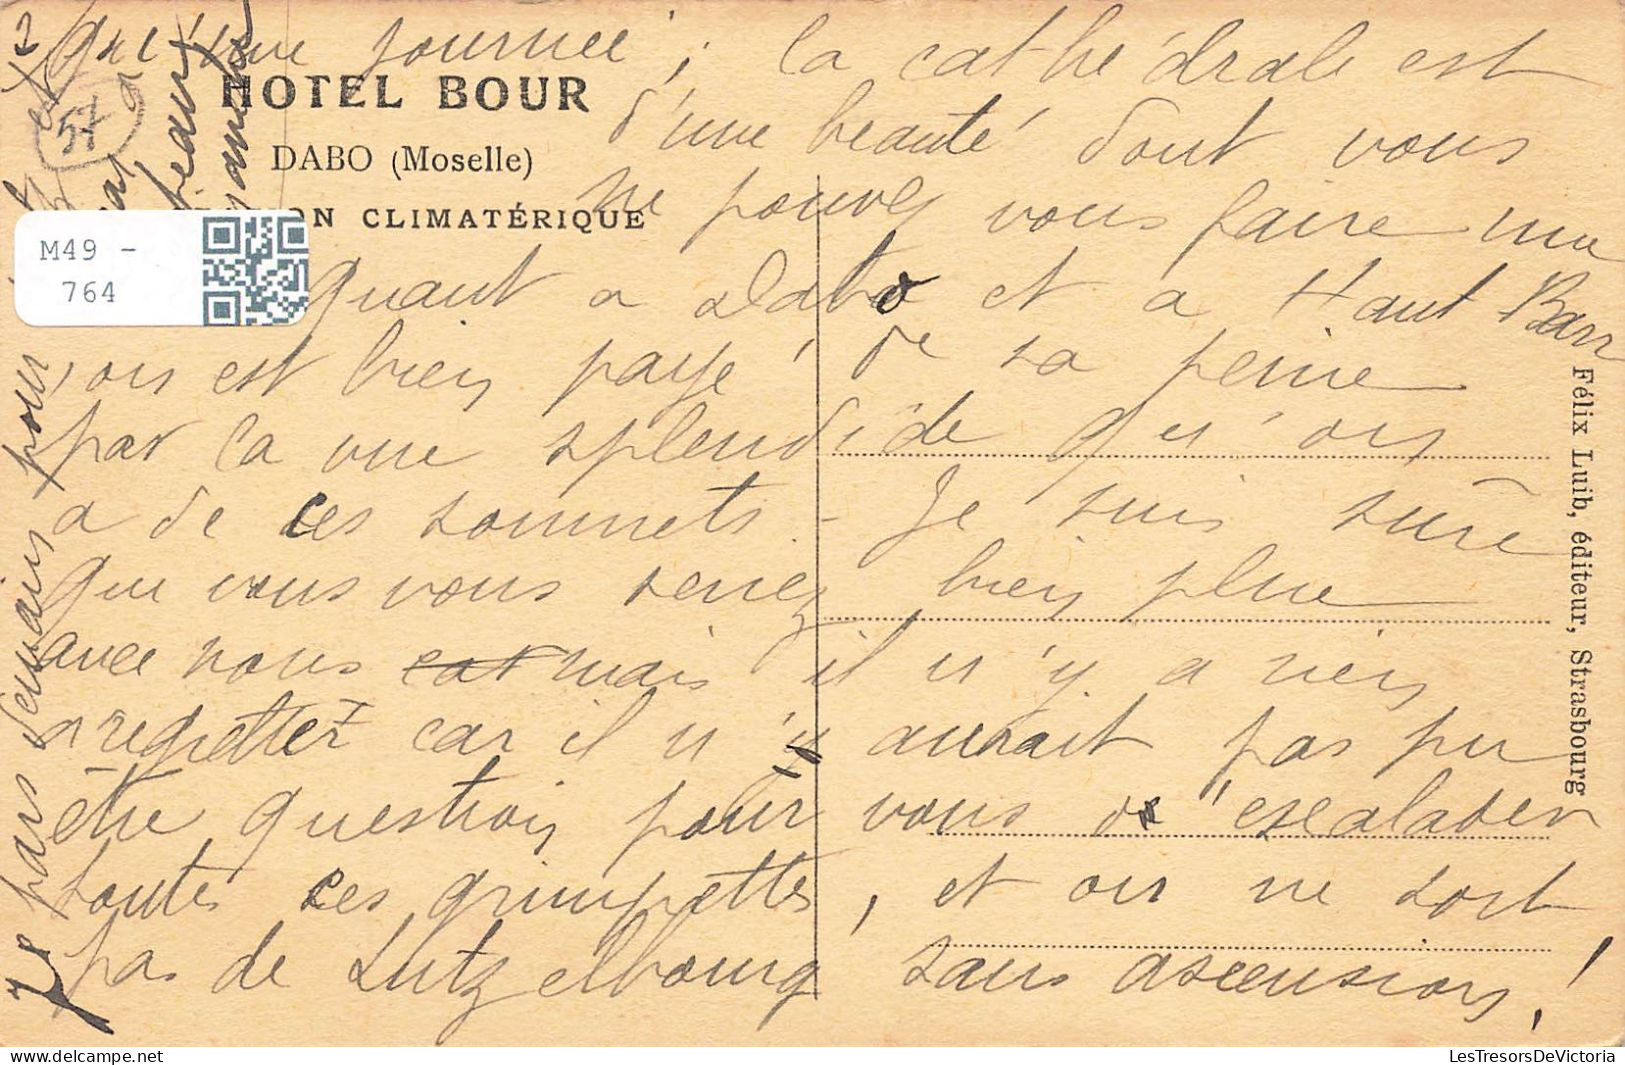 qu'une journée ; la cathédrale est
HOTEL BOUR
d'une beauté dont vous
DABO (Moselle)
ne pouvez vous faire une
ON CLIMATÉRIQUE
M49 -
764
57
quant a Dabo et a Haut Barr
, on est bien payé de sa peine
par la vue splendide qu'on
a de ces sommets - Je suis sûre
que vous vous seriez bien plue
avec nous mais il n'y a rien
a regretter car il n'y aurait pas pu
être question pour vous d'escalader
toutes ces grimpettes, et on ne sort
pas de Lutzelbourg sans ascension !
Je pars demain pour
Félix Luib, éditeur, Strasbourg
LesTresorsDeVictoria